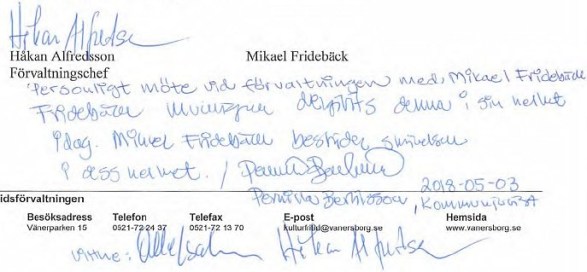 Håkan Alfredsson
Håkan Alfredsson Mikael Fridebäck
Förvaltningschef
Personligt möte vid förvaltningen med Mikael Fridebäck
Fridebäck denna i sin helhet
idag. Mikael Fridebäck bestrider skrivelsen
i dess helhet. /
2018-05-03
Pernilla Bertilsson, kommunjurist
idsförvaltningen
Besöksadress Telefon Telefax E-post Hemsida
Vänerparken 15 0521-72 24 37 0521-72 13 70 kulturfritid@vanersborg.se www.vanersborg.se
vittne: Håkan Alfredsson